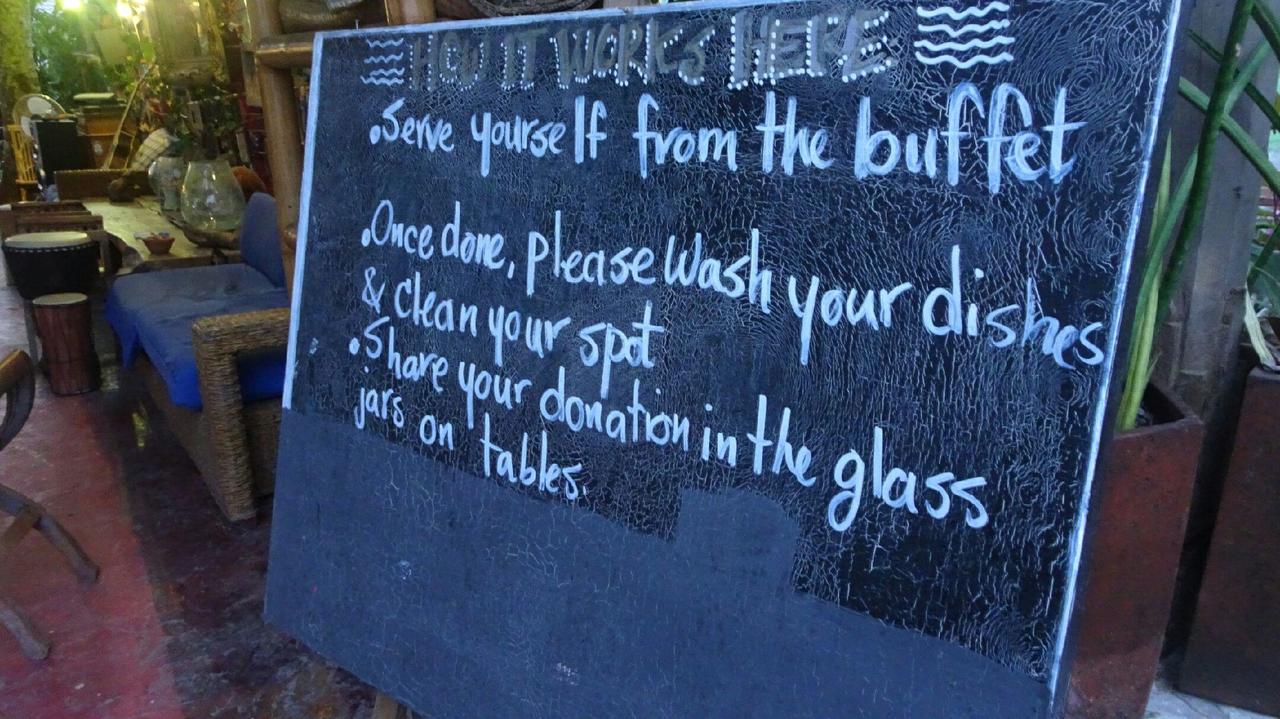 HOW IT WORKS HERE
.Serve yourself from the buffet
.Once done, please wash your dishes
& clean your spot
.Share your donation in the glass
jars on tables.